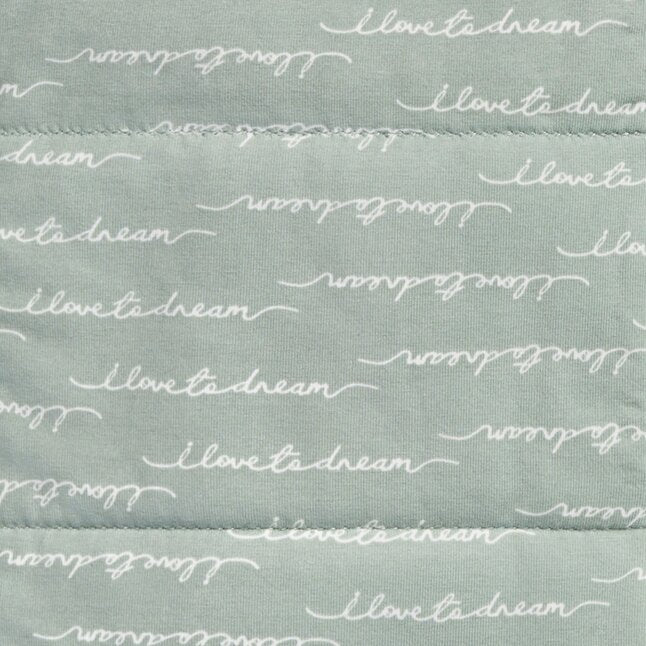 i love to dream
i love to dream
i love to dream
i love to dream
i love to
i love to dream
love to dream
i lo
i love to dream
i love to dream
i love to
i love to dream
i lov
i love to dream
i love to dream
i love to dream
i love to dream
i love to dream
i love to dream
i love to dream